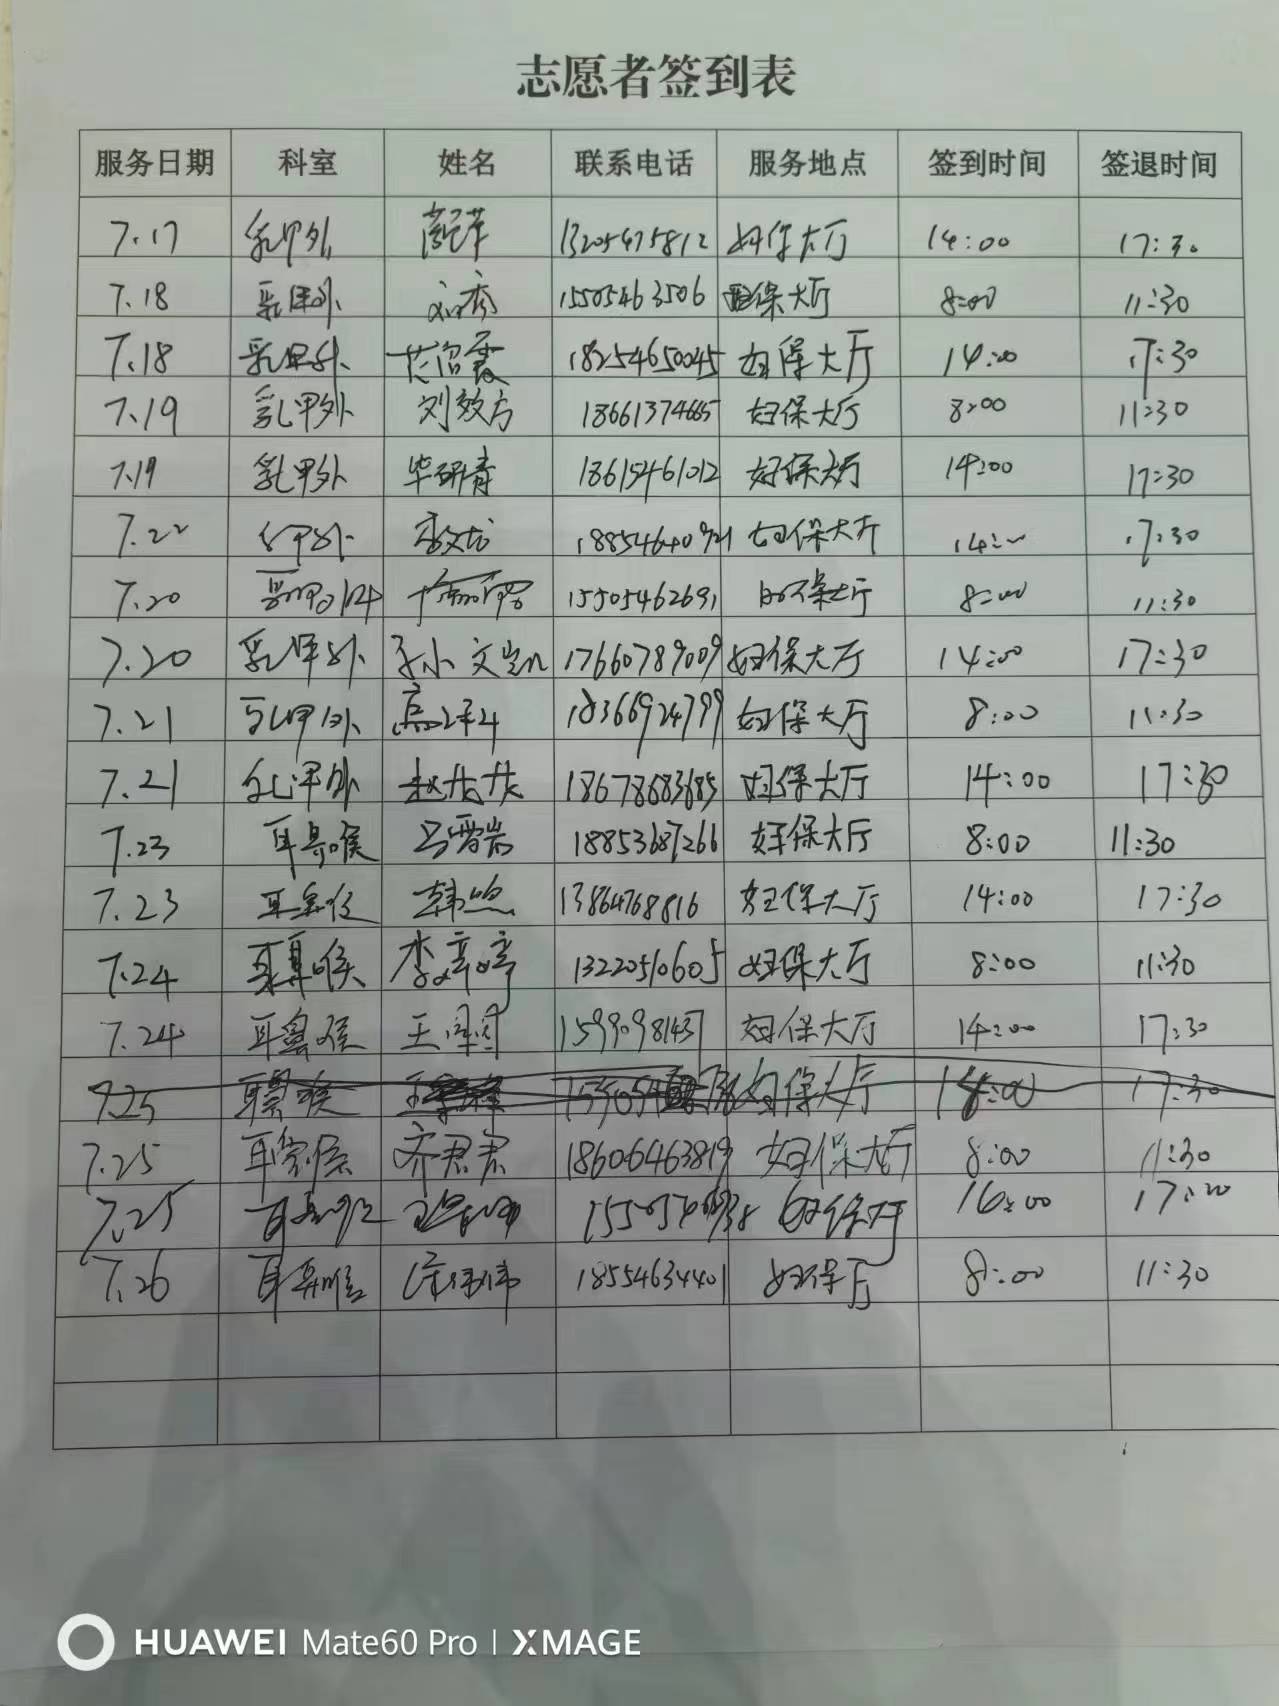 志愿者签到表
服务日期 科室 姓名 联系电话 服务地点 签到时间 签退时间
7.17 乳甲外 13205475812 妇保大厅 14:00 17:30
7.18 乳甲外 刘秀 15505463506 妇保大厅 8:00 11:30
7.18 乳甲外 18254650045 妇保大厅 14:00 17:30
7.19 乳甲外 刘效方 妇保大厅 8:00 11:30
7.19 乳甲外 毕研青 18615461012 妇保大厅 14:00 17:30
7.22 乳甲外 妇保大厅 14:00 17:30
7.20 乳甲外 15505462691 妇保大厅 8:00 11:30
7.20 乳甲外 17660789009 妇保大厅 14:00 17:30
7.21 乳甲外 18366924799 妇保大厅 8:00 11:30
7.21 乳甲外 18678683685 妇保大厅 14:00 17:30
7.23 耳鼻喉 18853687266 妇保大厅 8:00 11:30
7.23 耳鼻喉 13864768816 妇保大厅 14:00 17:30
7.24 耳鼻喉 李婷婷 13220510605 妇保大厅 8:00 11:30
7.24 耳鼻喉 15990981437 妇保大厅 14:00 17:30
7.25 耳鼻喉 妇保大厅 17:30
7.25 耳鼻喉 齐君君 18606463819 妇保大厅 8:00 11:30
7.25 耳鼻喉 妇保大厅
7.26 耳鼻喉 18554634401 妇保厅 8:00 11:30
HUAWEI Mate60 Pro | XMAGE